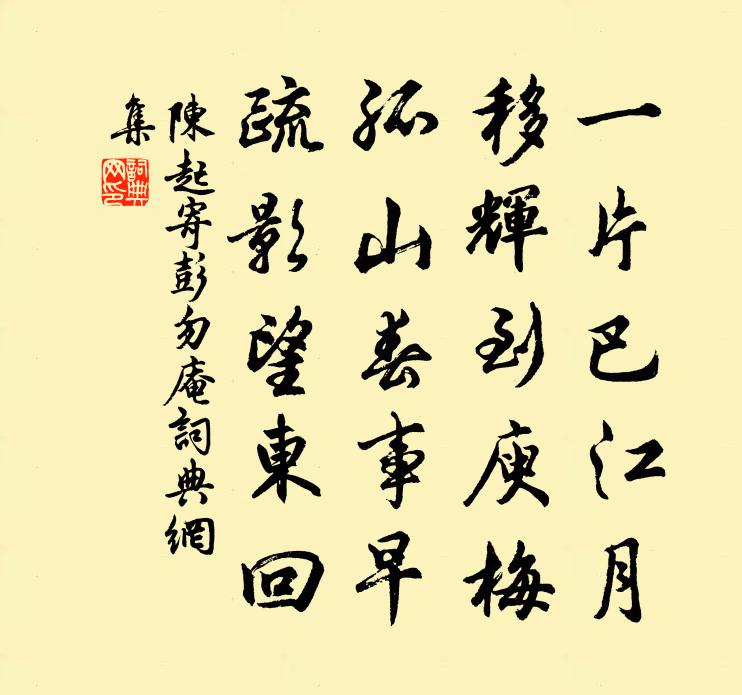 一片巴江月
移輝到庾梅
孤山春事早
疏影望東回
陳起寄彭勿庵詞典網
集
詞典網印